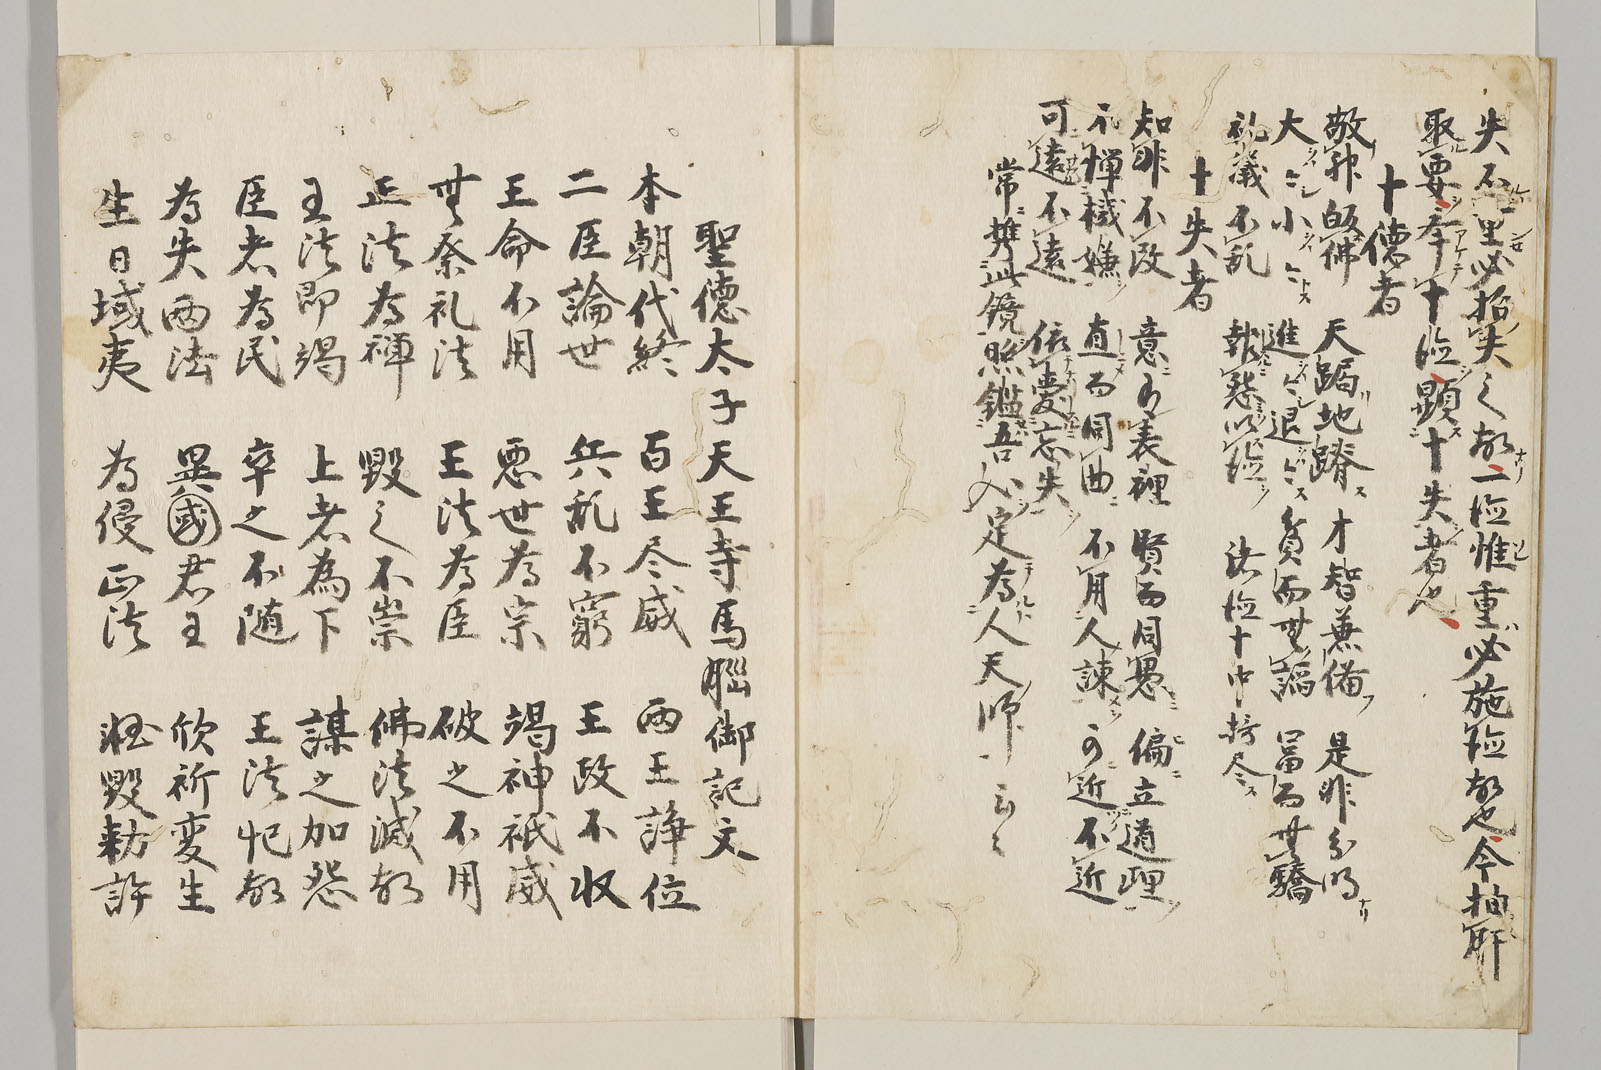 失不必招失之故二施惟重必施故也今抽
聚要挙十徳顕十失者也
十徳者
敬神敬佛 天跼地蹐 才智兼備 是非分明
大小 進退 貧而無謟 冨而無驕
礼儀不乱 報怨以 十中
十失者
知非不改 意有表裡 賢而同愚 偏立道理
不憚機嫌 直而同曲 不用人諫 可近不近
可遠不遠 依愛忘失
常携此鏡照鑑吾心定為人天師云々
聖徳太子天王寺馬脳御記文
本朝代終 百王尽威 両王諍位
二臣論世 兵乱不窮 王政不收
王命不用 悪世為宗 竭神祇威
無祭礼法 王法為臣 破之不用
正法為禅 毀之不崇 佛法滅故
王法即竭 上者為下 謀之加怨
臣者為民 卒之不随 王法怇故
為失両法 異國君王 欣祈変生
生日域夷 為侵正法 毀勅許